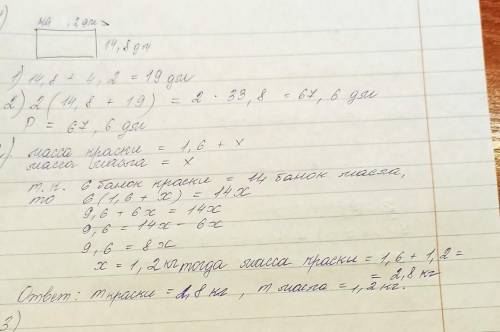 на 4,2 дм >
14,8 дм
1) 14,8 + 4,2 = 19 дм
2) 2(14,8 + 19) = 2 · 33,8 = 67,6 дм
P = 67,6 дм
масса краски = 1,6 + x
масса масла = x
т.к. 6 банок краски = 14 банок масла,
то 6(1,6 + x) = 14x
9,6 + 6x = 14x
9,6 = 14x - 6x
9,6 = 8x
x = 1,2 кг тогда масса краски = 1,6 + 1,2 =
= 2,8 кг
Ответ: m краски = 2,8 кг, m масла = 1,2 кг.
3)